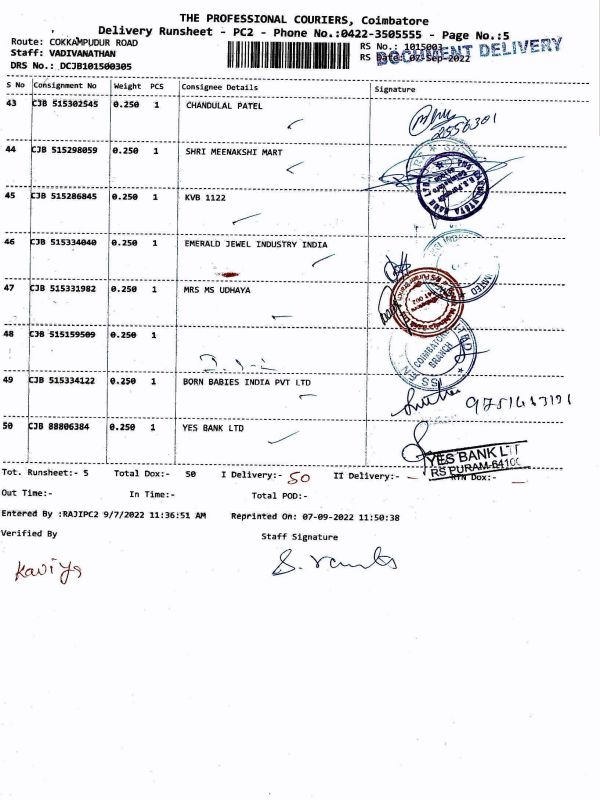 THE PROFESSIONAL COURIERS, Coimbatore
Delivery Runsheet - PC2 - Phone No.:0422-3505555 - Page No.:5
Route: COKKAMPUDUR ROAD
RS No.: 1015003
Staff: VADIVANATHAN
RS Date: 07-Sep-2022
DOCUMENT DELIVERY
DRS No.: DCJB101500305
S No Consignment No Weight PCS Consignee Details Signature
43 CJB 515302545 0.250 1 CHANDULAL PATEL
2556301
44 CJB 515298059 0.250 1 SHRI MEENAKSHI MART
45 CJB 515286845 0.250 1 KVB 1122
46 CJB 515334040 0.250 1 EMERALD JEWEL INDUSTRY INDIA
47 CJB 515331982 0.250 1 MRS MS UDHAYA
48 CJB 515159509 0.250 1
COIMBATORE
BRANCH
49 CJB 515334122 0.250 1 BORN BABIES INDIA PVT LTD
50 CJB 88806384 0.250 1 YES BANK LTD
YES BANK LT
RS PURAM-64100
Tot. Runsheet:- 5 Total Dox:- 50 I Delivery:- 50 II Delivery:- - RTN Dox:-
Out Time:- In Time:- Total POD:-
Entered By :RAJIPC2 9/7/2022 11:36:51 AM Reprinted On: 07-09-2022 11:50:38
Verified By Staff Signature
Kaviya